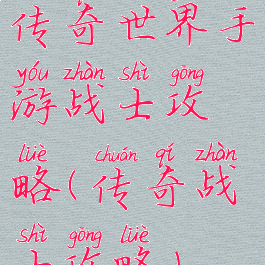 传奇世界手
yóu zhàn shì gōng
游战士攻
lüè chuán qí zhàn
略(传奇战
shì gōng lüè
士攻略)